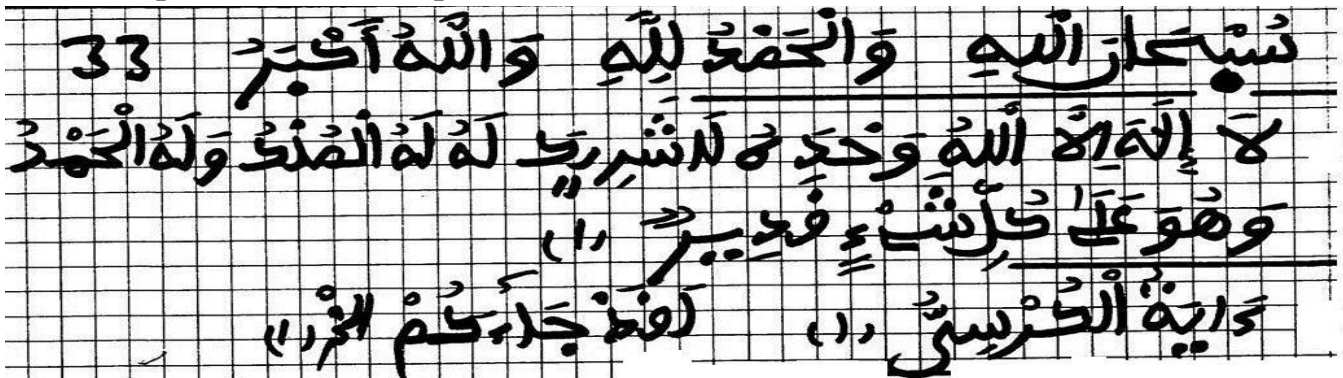 سُبْحَانَ اللهِ وَالْحَمْدُ لِلَّهِ وَاللَّهُ أَكْبَرُ 33
لَا إِلَهَ إِلَّا اللهُ وَحْدَهُ لَا شَرِيكَ لَهُ لَهُ الْمُلْكُ وَلَهُ الْحَمْدُ
وَهُوَ عَلَىٰ كُلِّ شَيْءٍ قَدِيرٌ (1)
ءَايَةُ الْكُرْسِيِّ (1) لَقَدْ جَاءَكُمْ الخ (1)